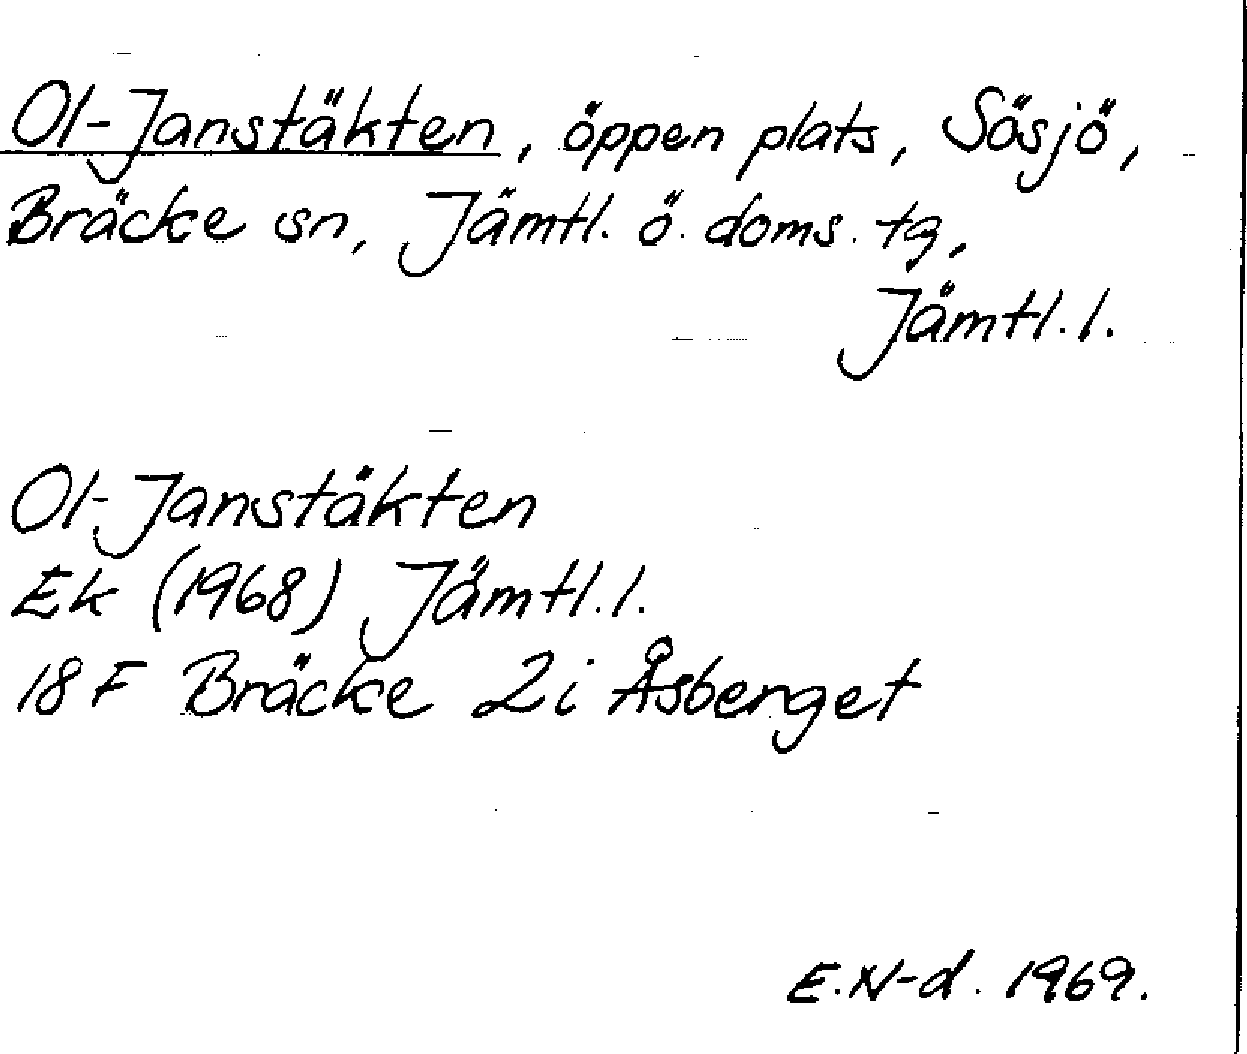 Ol-Janstäkten, öppen plats, Sösjö,
Bräcke sn, Jämtl. ö. doms. tg,
Jämtl. l.
Ol-Janstäkten
Ek (1968) Jämtl. l.
18 F Bräcke 2i Åsberget
E.N-d. 1969.